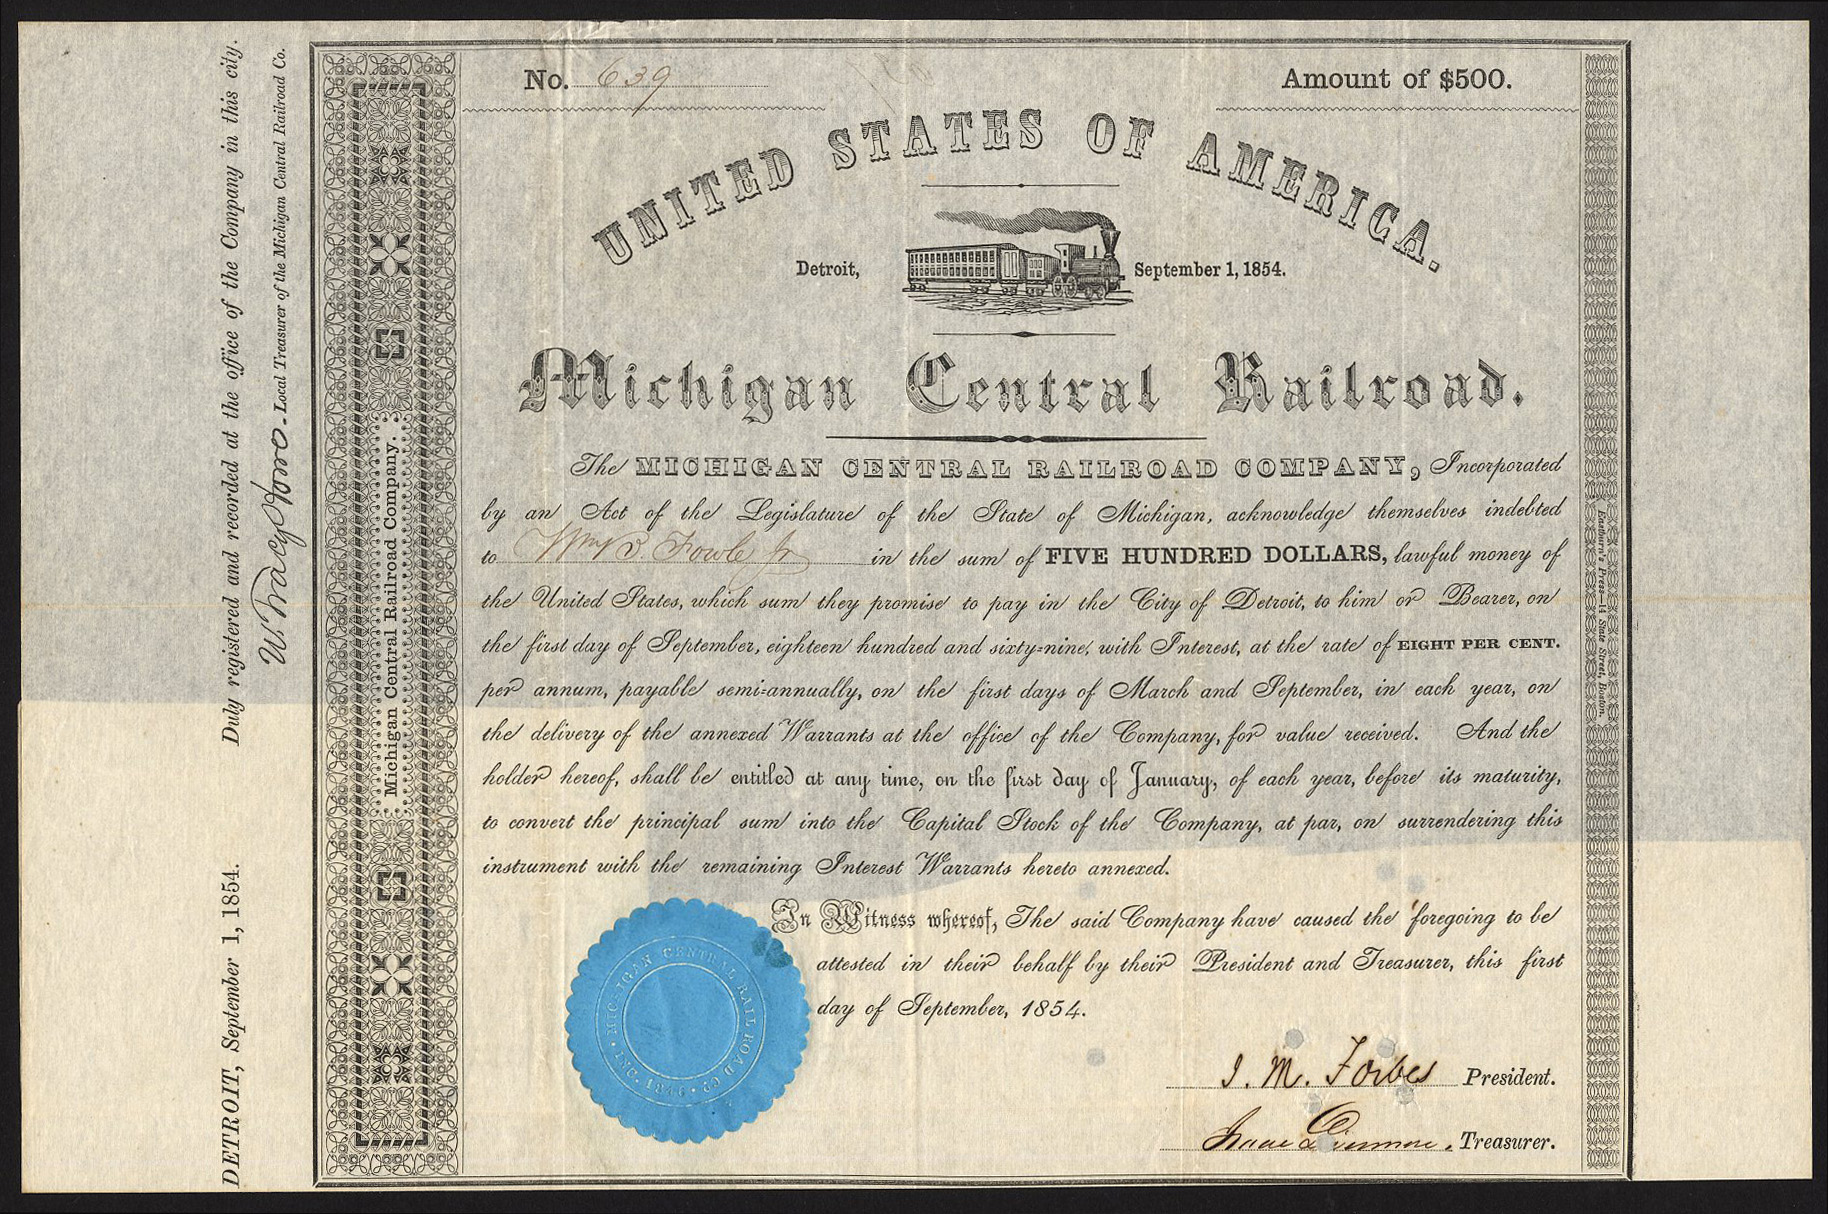 No. 639
Amount of $500.
UNITED STATES OF AMERICA.
Detroit,
September 1, 1854.
Michigan Central Railroad.
The MICHIGAN CENTRAL RAILROAD COMPANY, Incorporated
by an Act of the Legislature of the State of Michigan, acknowledge themselves indebted
to Wm B. Fowle Jr in the sum of FIVE HUNDRED DOLLARS, lawful money of
the United States, which sum they promise to pay in the City of Detroit, to him or Bearer, on
the first day of September, eighteen hundred and sixty-nine, with Interest, at the rate of EIGHT PER CENT.
per annum, payable semi-annually, on the first days of March and September, in each year, on
the delivery of the annexed Warrants at the office of the Company, for value received. And the
holder hereof, shall be entitled at any time, on the first day of January, of each year, before its maturity,
to convert the principal sum into the Capital Stock of the Company, at par, on surrendering this
instrument with the remaining Interest Warrants hereto annexed.
In Witness whereof, The said Company have caused the foregoing to be
attested in their behalf by their President and Treasurer, this first
day of September, 1854.
J. M. Forbes President.
Isaac Livermore. Treasurer.
MICHIGAN CENTRAL RAIL ROAD CO. 1846
Michigan Central Railroad Company.
Eastburn's Press—14 State Street, Boston.
DETROIT, September 1, 1854. Duly registered and recorded at the office of the Company in this city.
W. Tracy Local Treasurer of the Michigan Central Railroad Co.